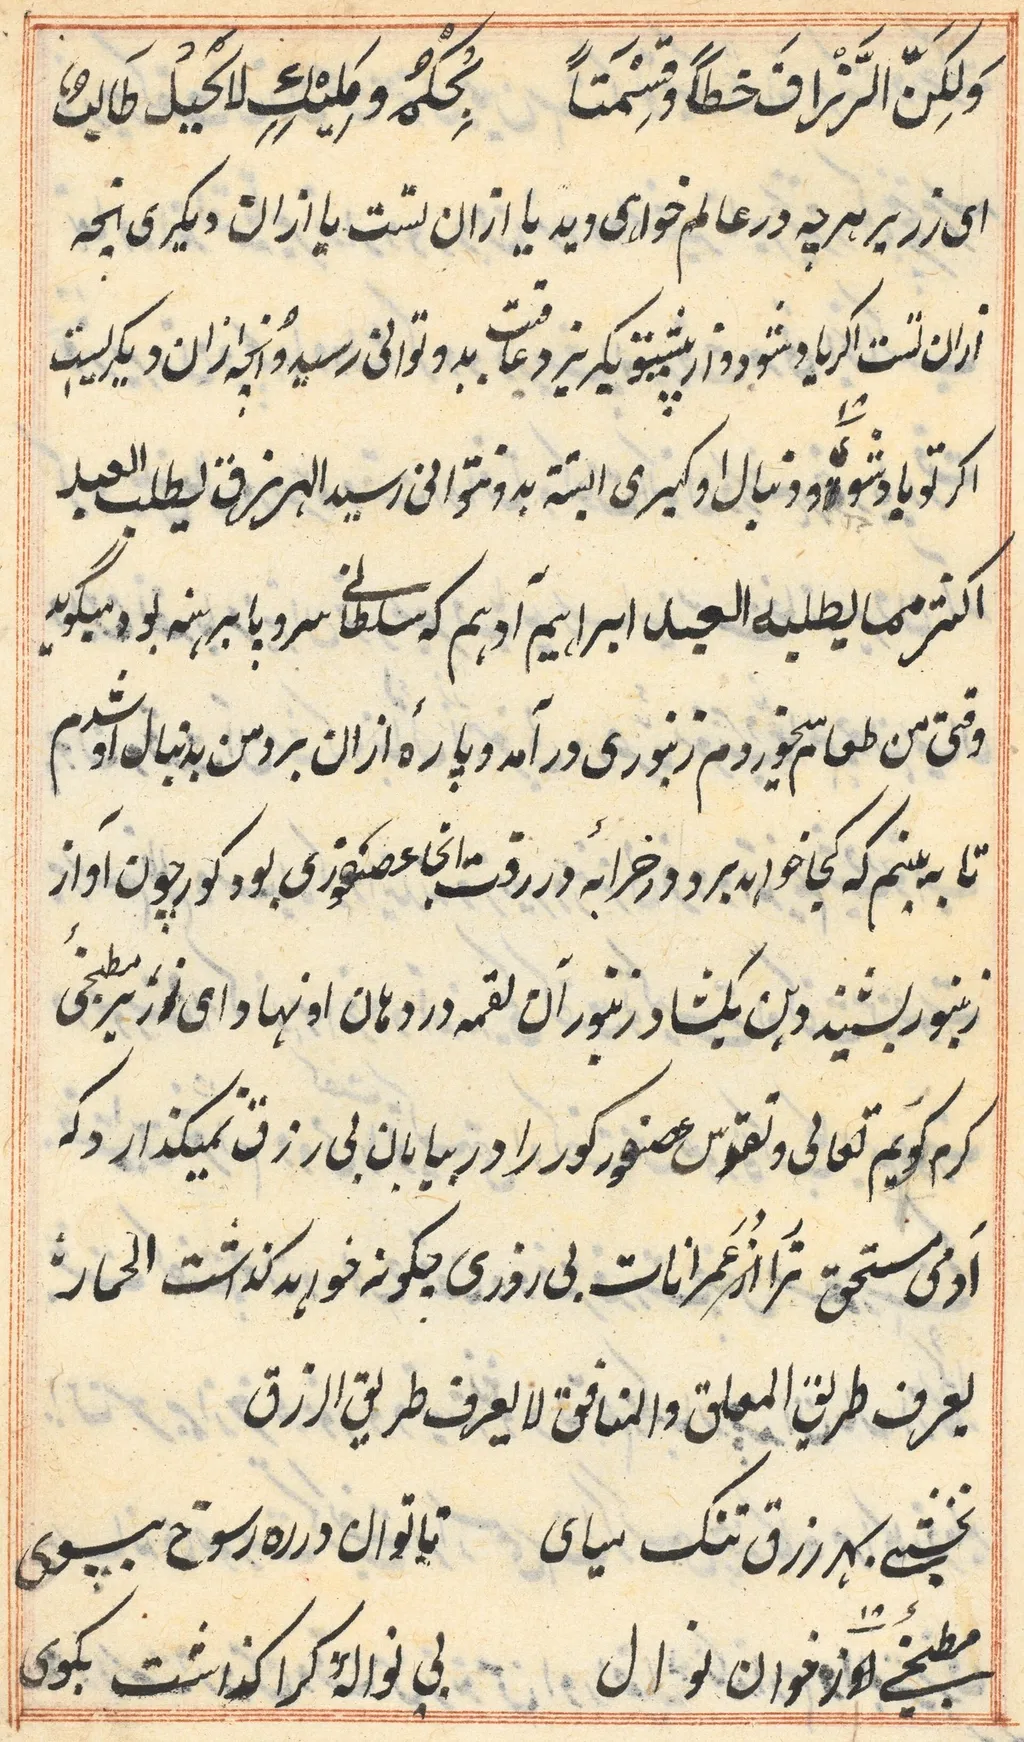 وَلٰكِنَّ الرِّزْقَ خطاً وَقِسْمَتاً بِحُكْمِ وَمَلِيْكِ لا بِحَيل طَالِبٍ
ای زر پر هر چه در عالم خواهی دید یا از ان تست یا از ان دیکری انچه
ازان تست اکر باد شود و از پیش تو بکریزد عاقبت بدو توانی رسید و انچه ازان دیکریست
اکر تو باد شوی و دنبال او کیری البته بدو نتوانی رسید الرزق لیطلب العبد
اکثر مما یطلبه العبد ابراهیم آدهم که سلطانی سر و پا برهنه بود میکوید
وقتی من طعام میخوردم زنبوری در آمد و پارهٔ ازان برد من بدنبال او شدم
تا به بینم که کجا خواهد برد در خرابهٔ در رفت انجا عصفوری بود کور چون آواز
زنبور بشنید دهن بکشاد زنبور آن لقمه در دهان او نهاد ای مطبخیٔ
کرم کویم تعالی و تقدس عصفور کور را در بیابان بی رزق نمیکذارد که
آدمی مستحق ترا از عمرانات بی روزی چکونه خواهد کذاشت الحمار
یعرف طریق المعلق والمنافق لا یعرف طریق الرزق
نخشبی بهر رزق تنک میای تا توان در ره رسوخ بپوی
مطبخیٔ خوان نوال بی نوالهٔ کرا کذاشت بکوی